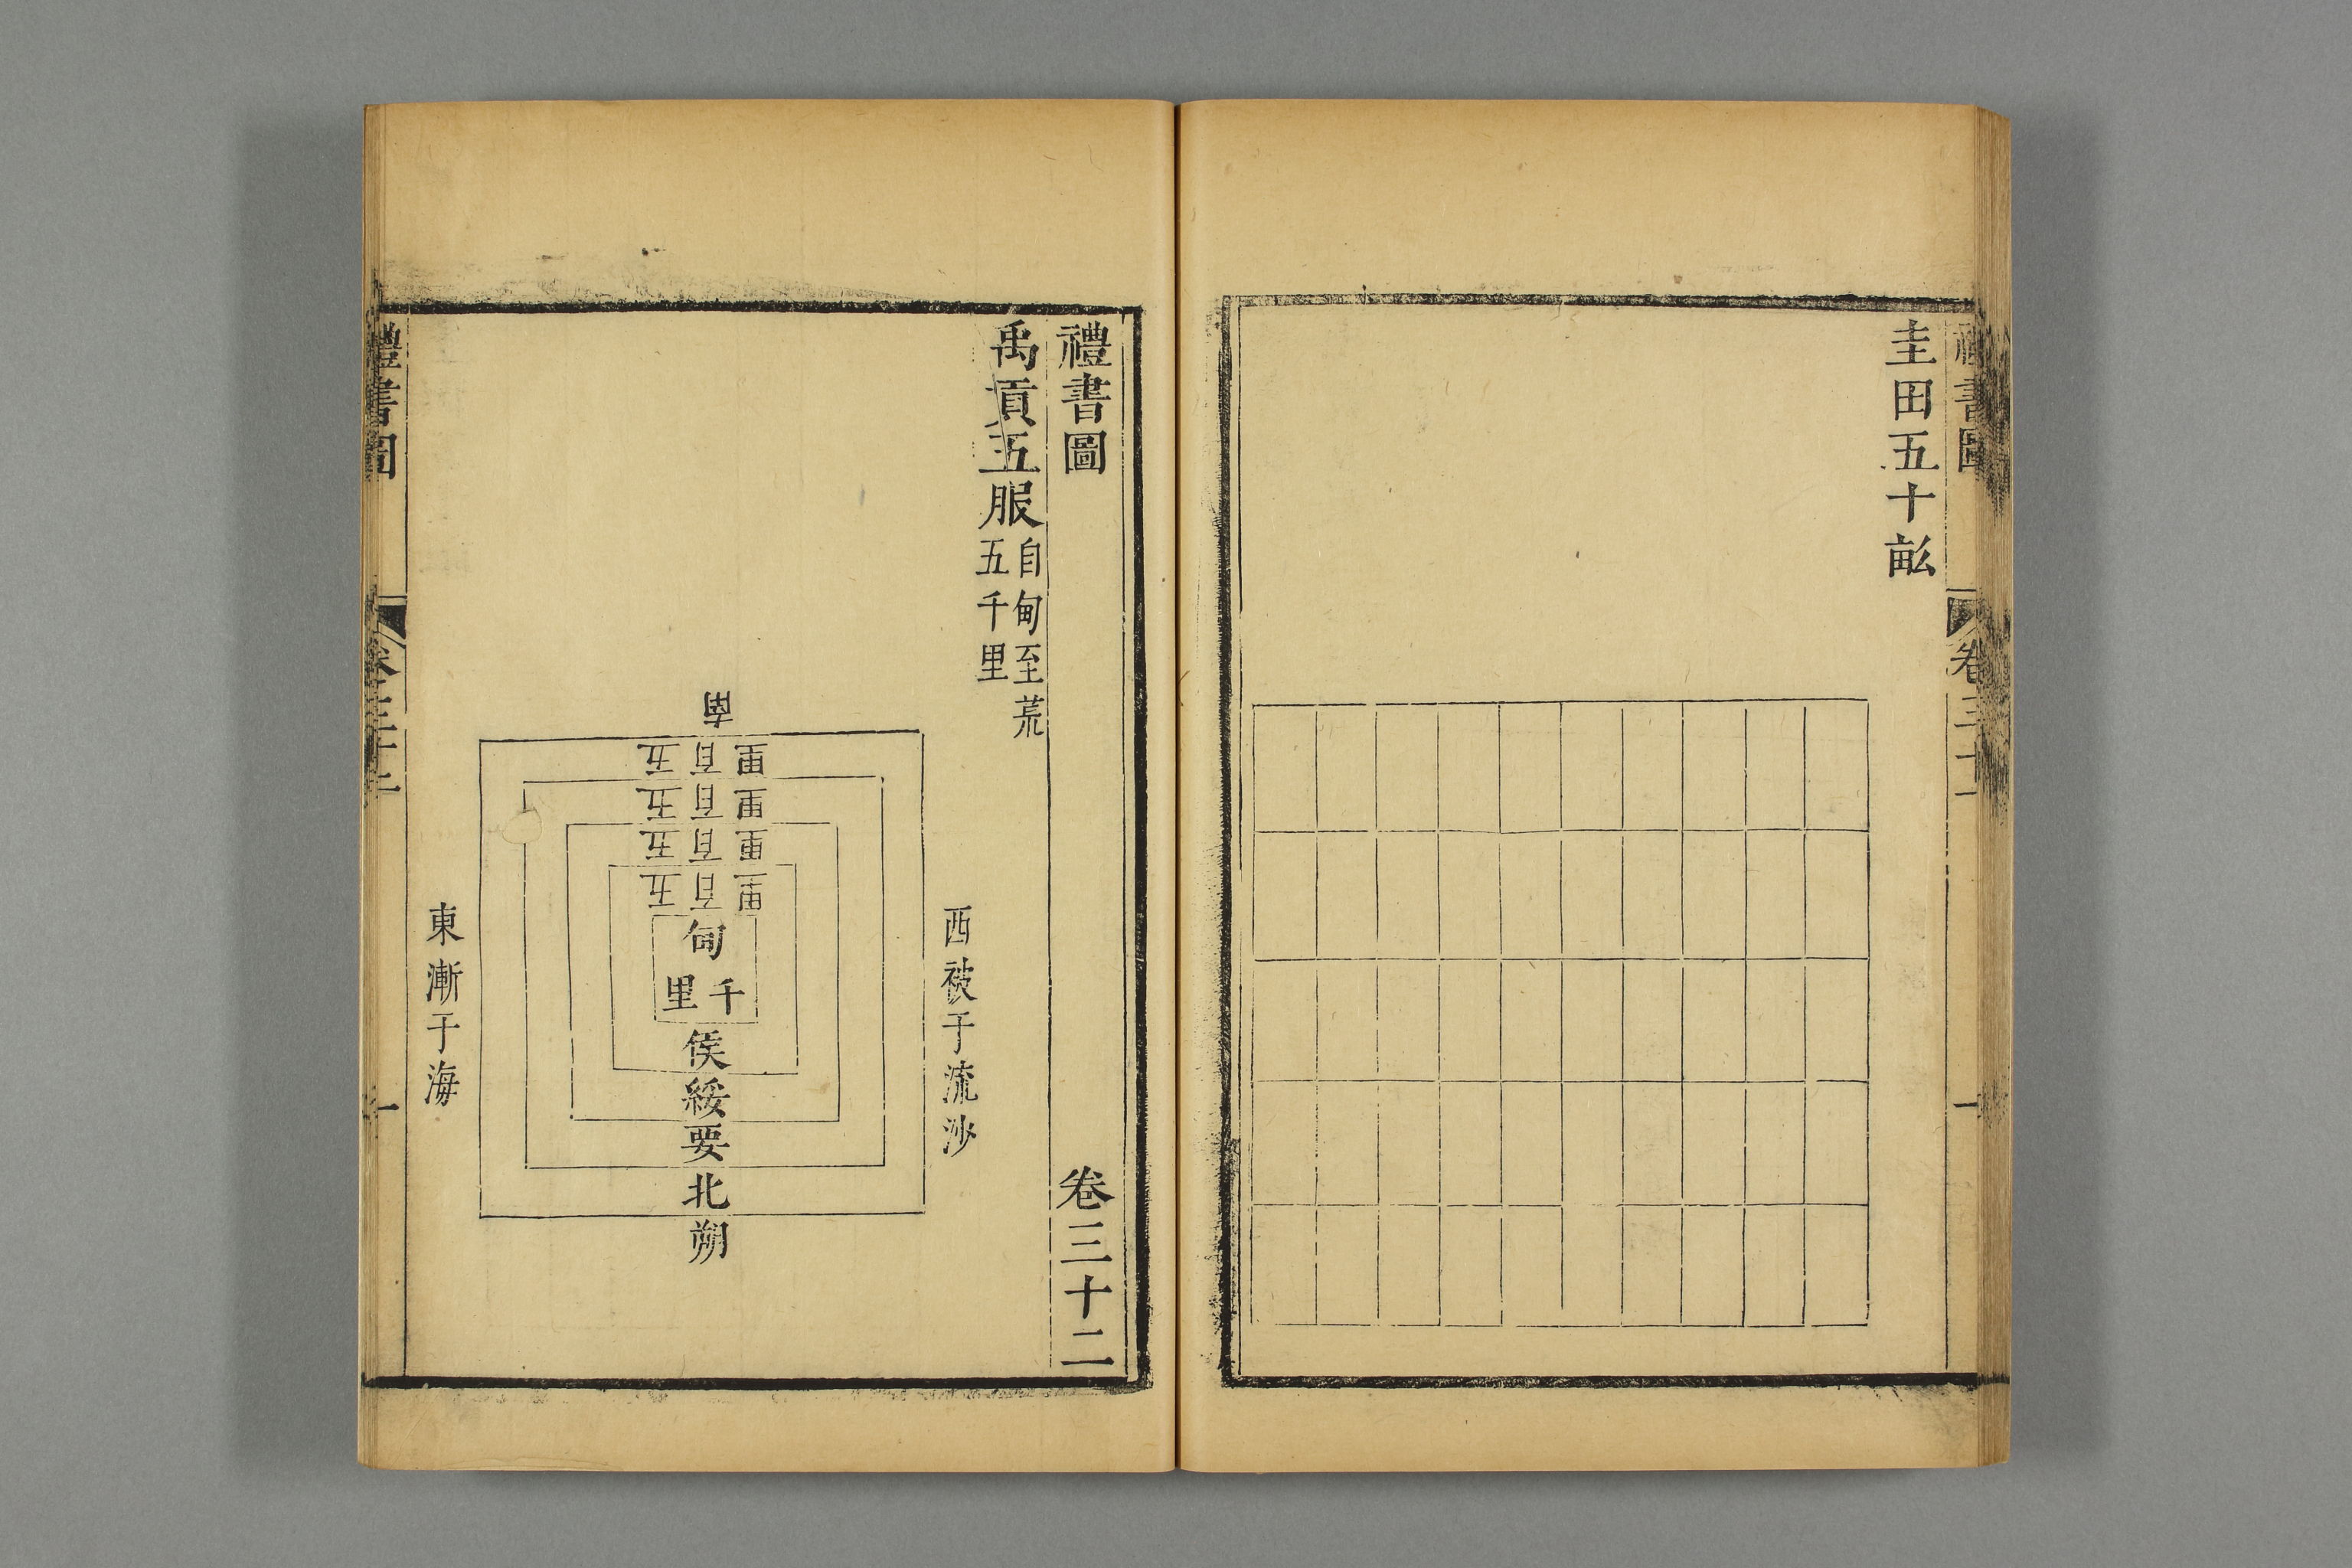 禮書圖
卷三十一
一
圭田五十畝
禮書圖
卷三十二
禹貢五服
自甸至荒
五千里
西被于流沙
南
里百五
里百五
里百五
里百五
甸
千里
侯
綏
要
北
朔
東漸于海
禮書圖
卷三十二
一